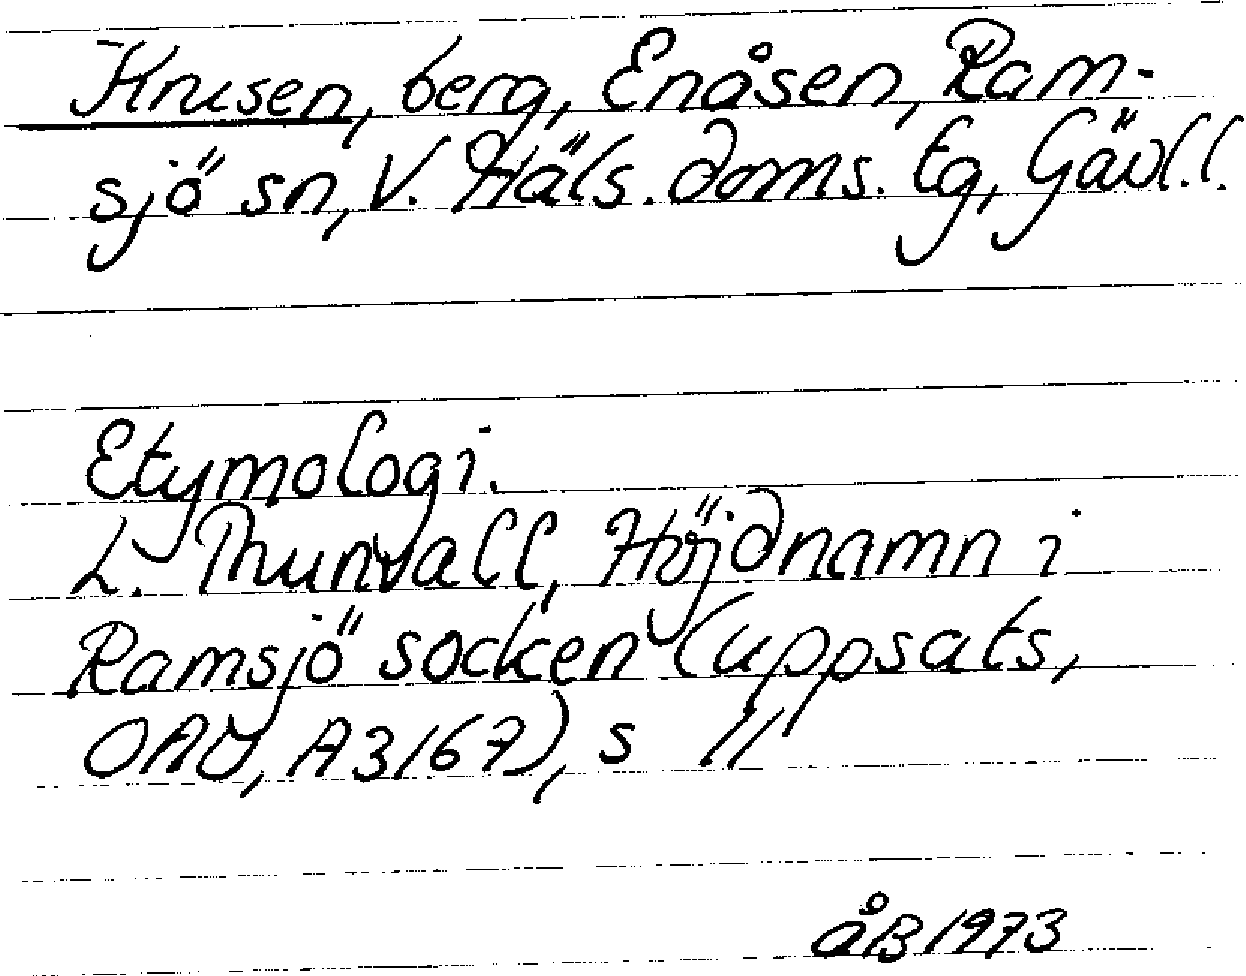 Knusen, berg, Enåsen, Ram-
sjö sn, V. Häls. doms. tg, Gävl.l.
Etymologi.
L. Thunvall, Höjdnamn i
Ramsjö socken (uppsats,
OAU, A3167), s 11
åB 1973